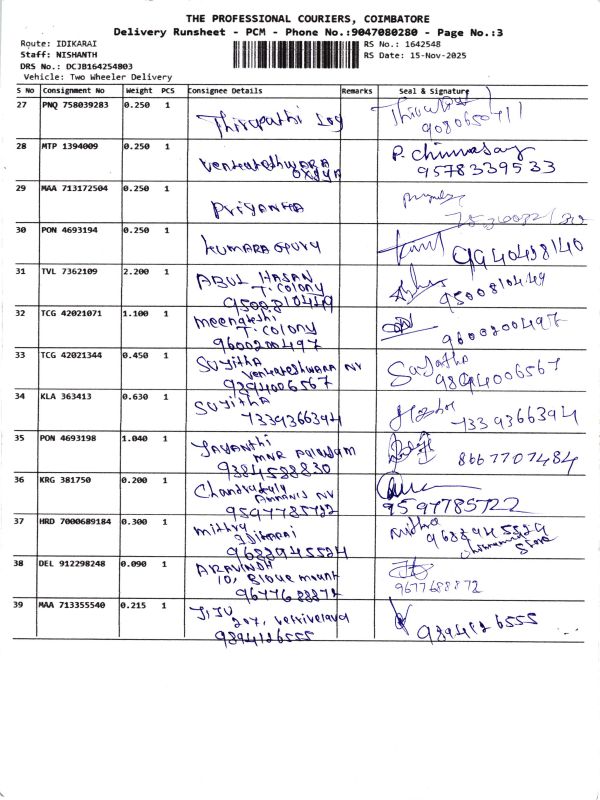 THE PROFESSIONAL COURIERS, COIMBATORE
Delivery Runsheet - PCM - Phone No.:9047080280 - Page No.:3
Route: IDIKARAI
RS No.: 1642548
Staff: NISHANTH
RS Date: 15-Nov-2025
DRS No.: DCJB164254803
Vehicle: Two Wheeler Delivery
S No Consignment No Weight PCS Consignee Details Remarks Seal & Signature
27 PNQ 758039283 0.250 1
Thirupathi
28 MTP 1394009 0.250 1
P. Chinnasamy
9578339533
29 MAA 713172504 0.250 1
Priyanka
30 PON 4693194 0.250 1
9940498140
31 TVL 7362109 2.200 1
ABUL HASAN
T. Colony
9500810449 9500810449
32 TCG 42021071 1.100 1
Meenatchi
T. Colony
9600200497 9600200497
33 TCG 42021344 0.450 1
Sujitha Sujatha
Venkateshwara NV
9894006567 9894006567
34 KLA 363413 0.630 1
Sujitha
7339366394 7339366394
35 PON 4693198 1.040 1
Jayanthi
9384588830 8667707484
36 KRG 381750 0.200 1
9597785722 9597785722
37 HRD 7000689184 0.300 1
Mithra Mitha
Idikarai
38 DEL 912298248 0.090 1
ARAVINDH
10, Bloue mount
9677688872 9677688872
39 MAA 713355540 0.215 1
JIJU
207, Vetrivelava
9894126555 9894126555